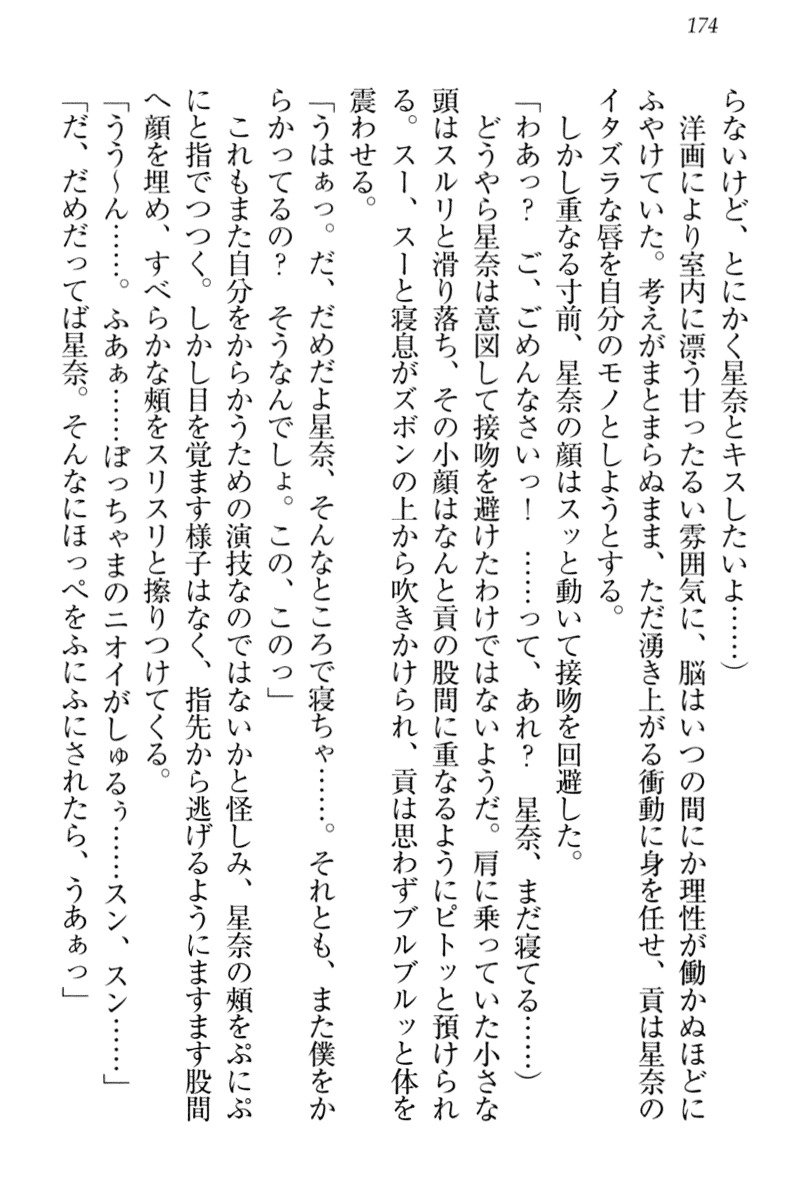 174
らないけど、とにかく星奈とキスしたいよ……）
　洋画により室内に漂う甘ったるい雰囲気に、脳はいつの間にか理性が働かぬほどに
ふやけていた。考えがまとまらぬまま、ただ湧き上がる衝動に身を任せ、貢は星奈の
イタズラな唇を自分のモノとしようとする。
　しかし重なる寸前、星奈の顔はスッと動いて接吻を回避した。
「わあっ？　ご、ごめんなさいっ！　……って、あれ？　星奈、まだ寝てる……）
　どうやら星奈は意図して接吻を避けたわけではないようだ。肩に乗っていた小さな
頭はスルリと滑り落ち、その小顔はなんと貢の股間に重なるようにピトッと預けられ
る。スー、スーと寝息がズボンの上から吹きかけられ、貢は思わずブルブルッと体を
震わせる。
「うはぁっ。だ、だめだよ星奈、そんなところで寝ちゃ……。それとも、また僕をか
らかってるの？　そうなんでしょ。この、このっ」
　これもまた自分をからかうための演技なのではないかと怪しみ、星奈の頰をぷにぷ
にと指でつつく。しかし目を覚ます様子はなく、指先から逃げるようにますます股間
へ顔を埋め、すべらかな頰をスリスリと擦りつけてくる。
「うう～ん……。ふあぁ……ぼっちゃまのニオイがしゅるぅ……スン、スン……」
「だ、だめだってば星奈。そんなにほっぺをふにふにされたら、うあぁっ」